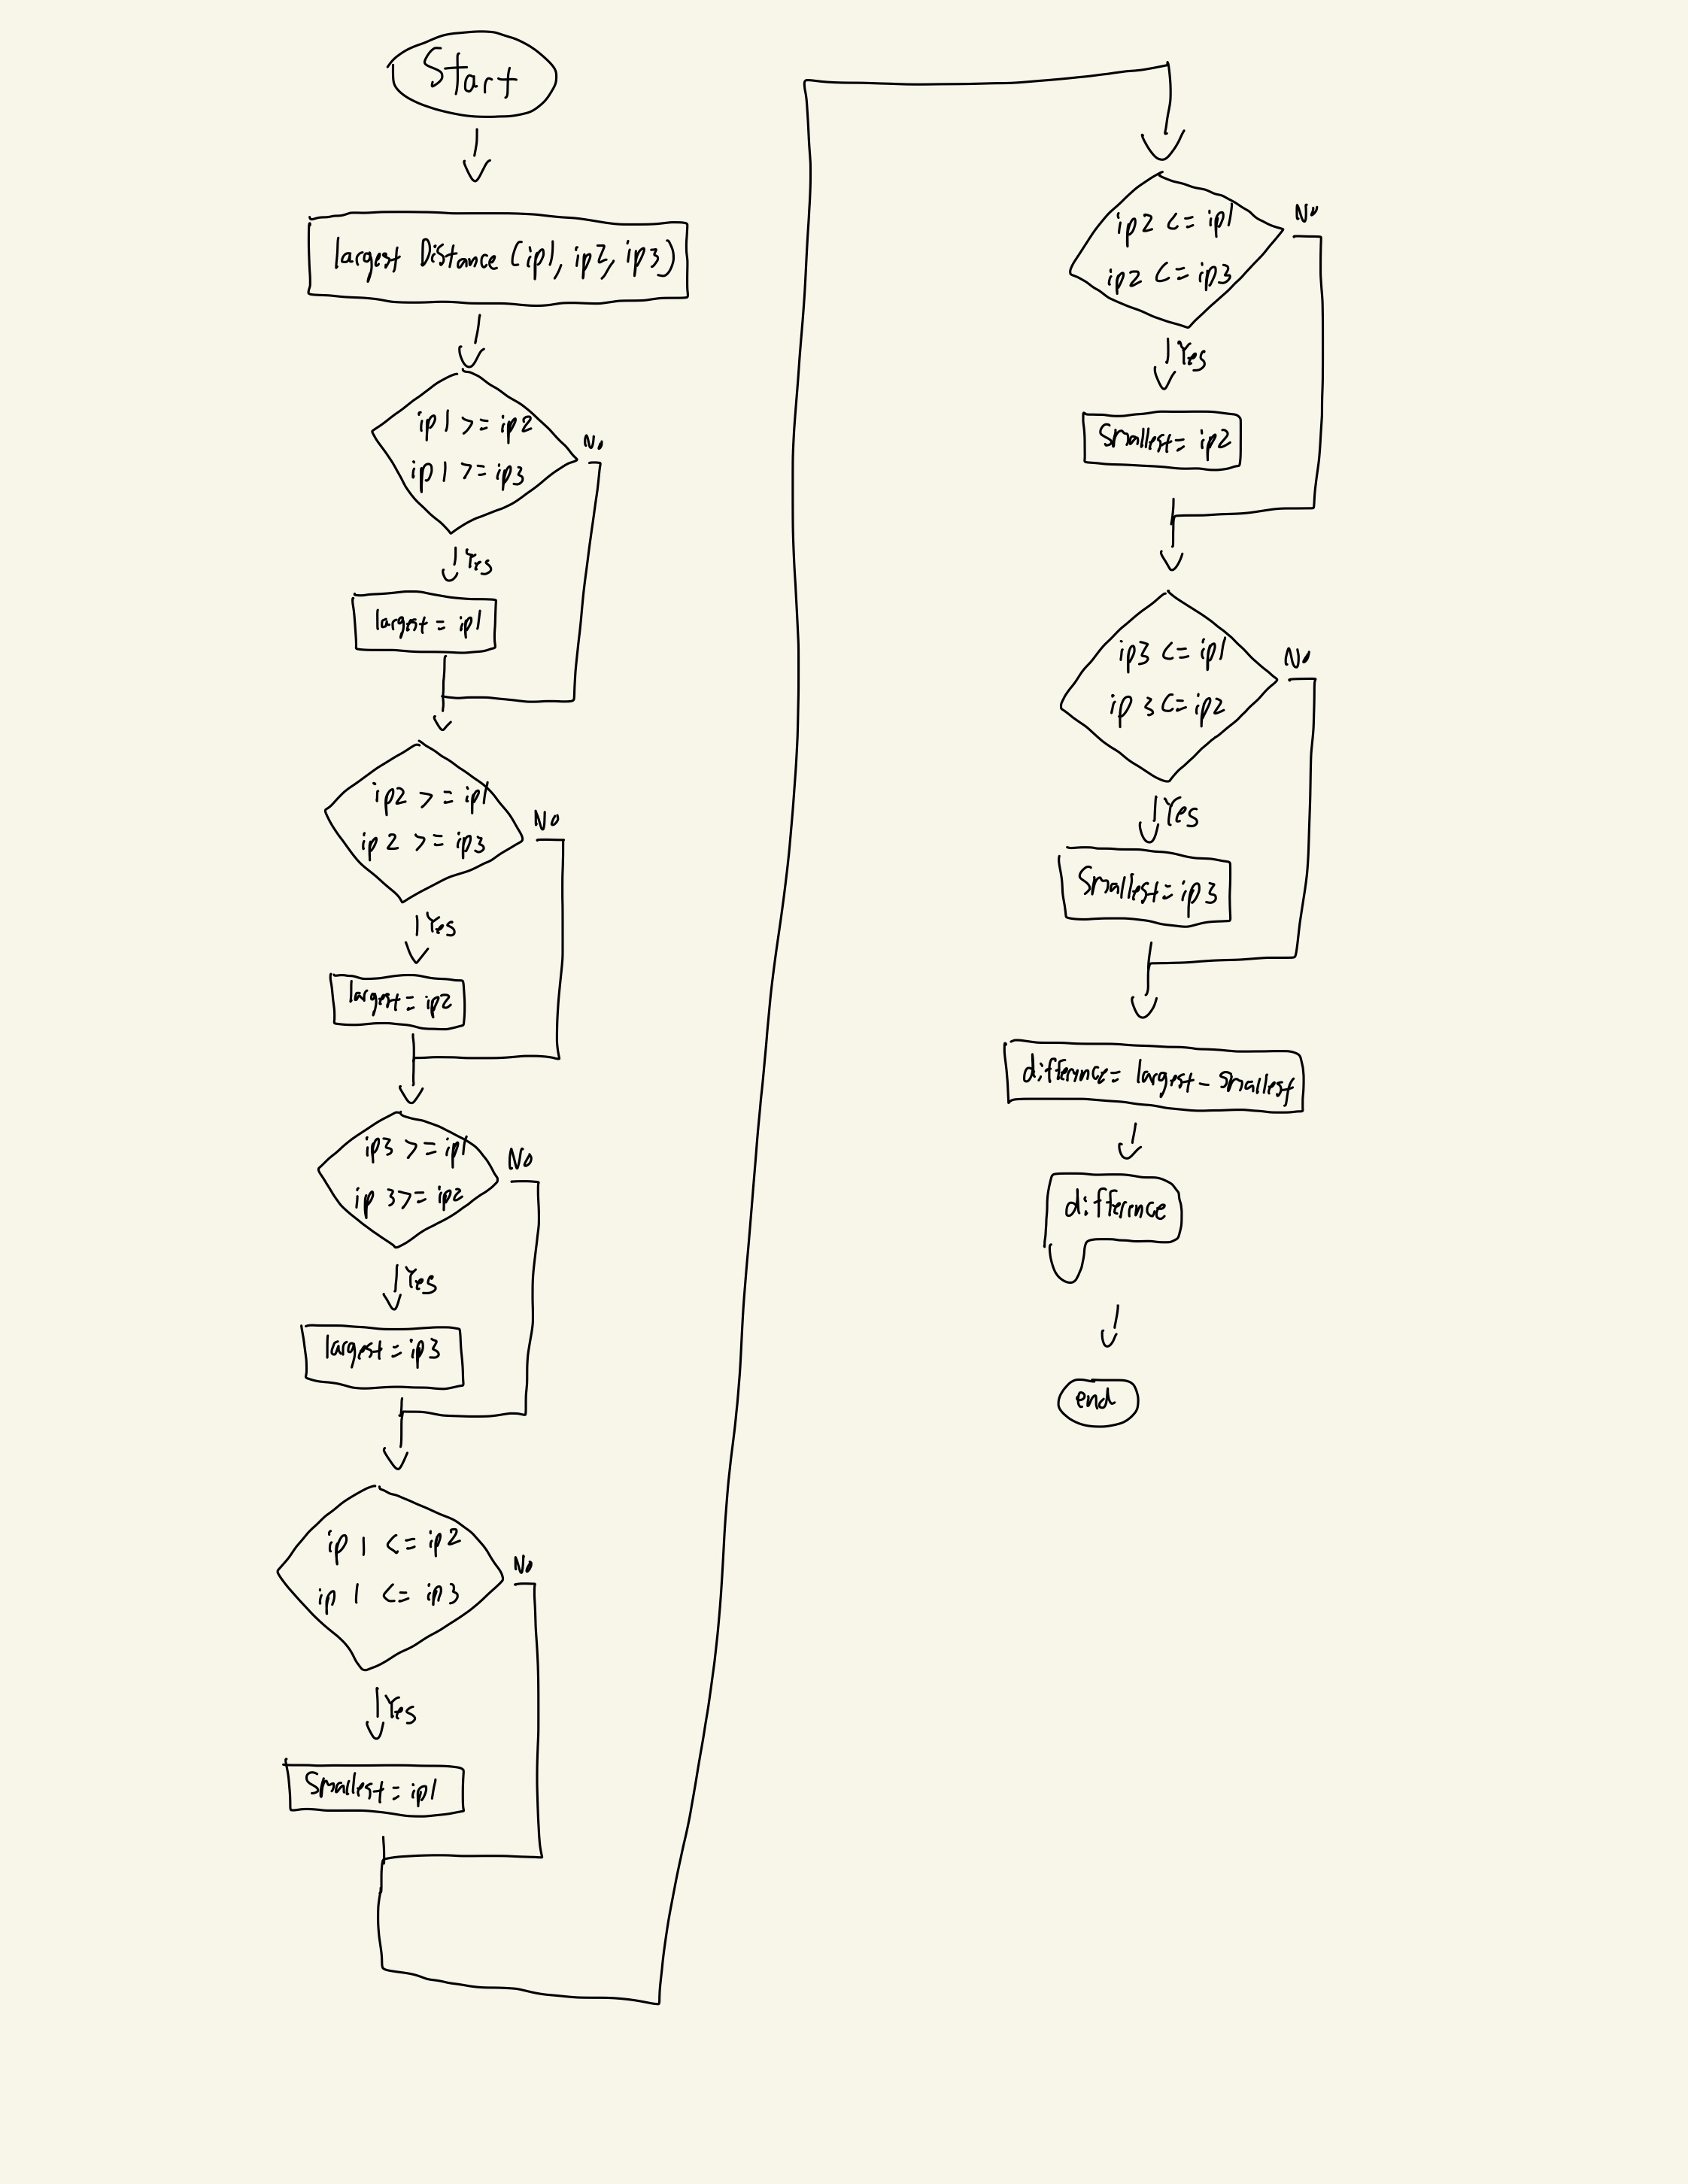 Start
largest Distance (ip1, ip2, ip3)
ip1 >= ip2
ip1 >= ip3
No
Yes
largest = ip1
ip2 >= ip1
ip2 >= ip3
No
Yes
largest = ip2
ip3 >= ip1
ip3 >= ip2
No
Yes
largest = ip3
ip1 <= ip2
ip1 <= ip3
No
Yes
Smallest = ip1
ip2 <= ip1
ip2 <= ip3
No
Yes
Smallest = ip2
ip3 <= ip1
ip3 <= ip2
No
Yes
Smallest = ip3
difference = largest - smallest
difference
end